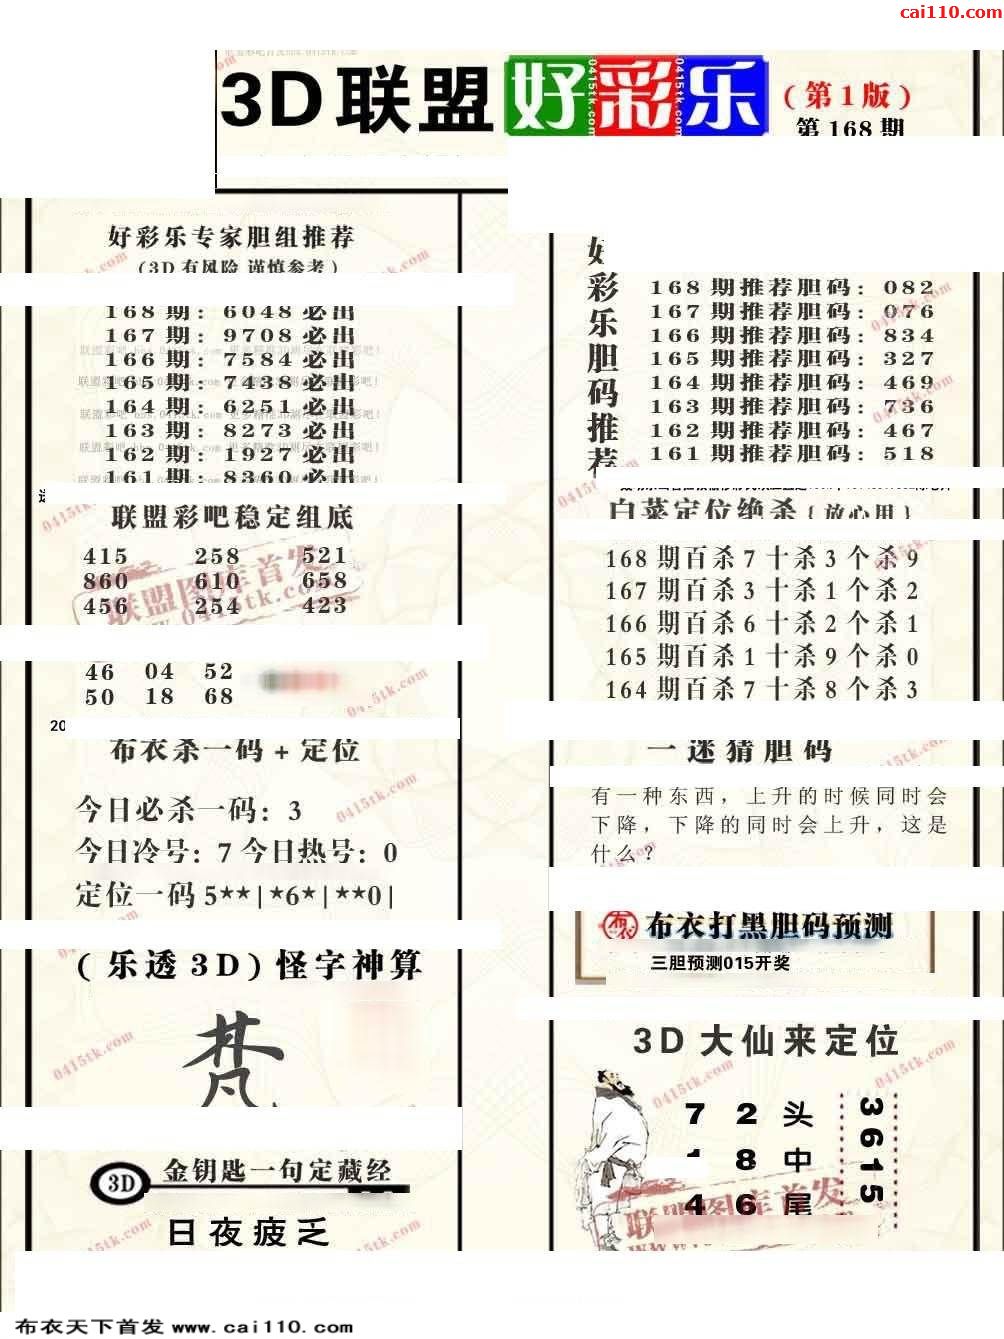 cai110.com
3D联盟好彩乐(第1版)
第168期
好彩乐专家胆组推荐
(3D有风险 谨慎参考)
168期: 6048必出
167期: 9708必出
166期: 7584必出
165期: 7438必出
164期: 6251必出
163期: 8273必出
162期: 1927必出
161期: 8360必出
联盟彩吧稳定组底
415 258 521
860 610 658
456 254 423
46 04 52
50 18 68
20
布衣杀一码+定位
今日必杀一码: 3
今日冷号: 7 今日热号: 0
定位一码 5**|*6*|**0|
(乐透3D)怪字神算
梵
3D 金钥匙一句定藏经
日夜疲乏
好彩乐胆码推荐
168期推荐胆码: 082
167期推荐胆码: 076
166期推荐胆码: 834
165期推荐胆码: 327
164期推荐胆码: 469
163期推荐胆码: 736
162期推荐胆码: 467
161期推荐胆码: 518
白菜定位绝杀{放心用}
168期百杀7十杀3个杀9
167期百杀3十杀1个杀2
166期百杀6十杀2个杀1
165期百杀1十杀9个杀0
164期百杀7十杀8个杀3
一迷猜胆码
有一种东西，上升的时候同时会
下降，下降的同时会上升，这是
什么？
布衣 布衣打黑胆码预测
三胆预测015开奖
3D大仙来定位
7 2 头
1 8 中
4 6 尾
3615
联盟图库首发
布衣天下首发 www.cai110.com